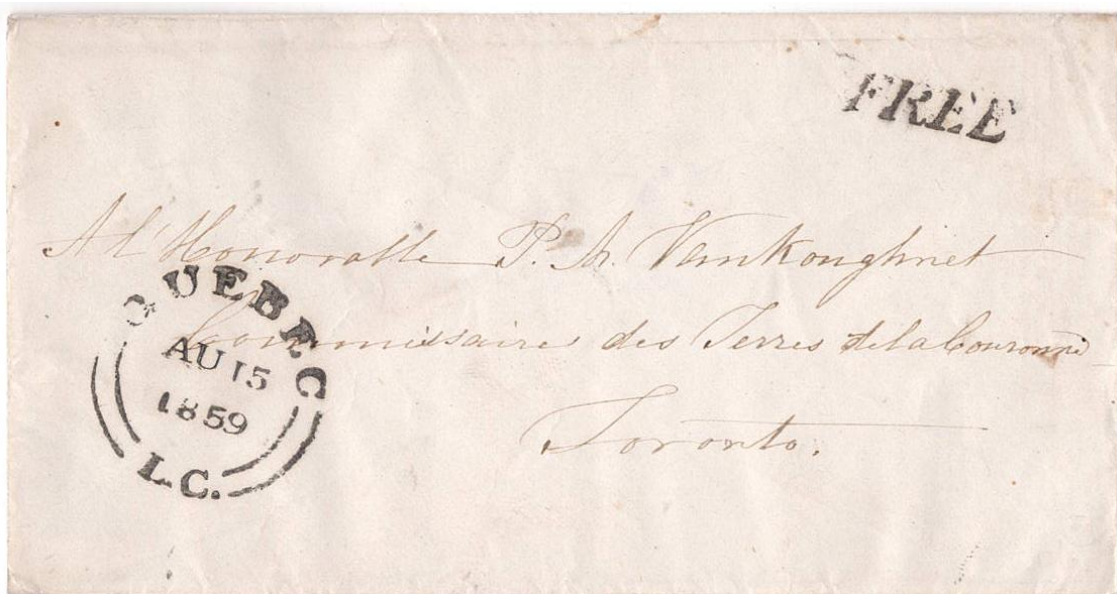 FREE
A l'Honorable P. M. VanKoughnet
Commissaire des Terres de la Couronne
Toronto.
QUEBEC
AU 15
1859
L.C.